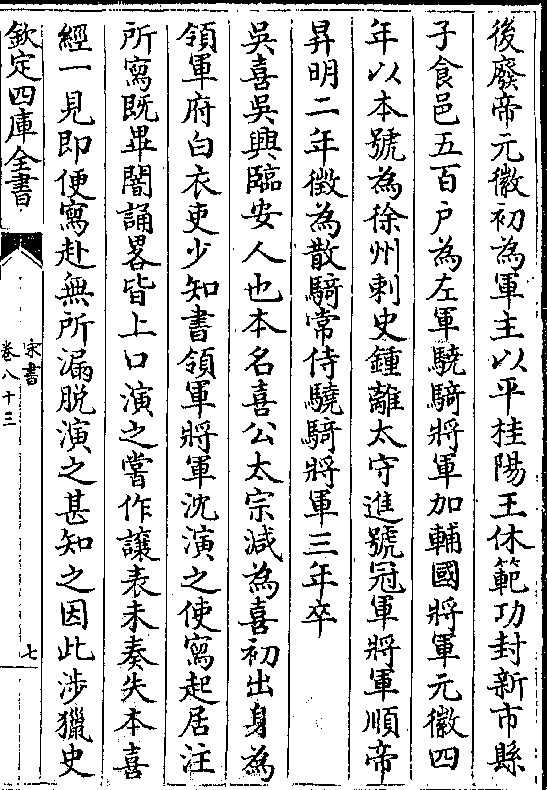 後廢帝元徽初為軍主以平桂陽王休範功封新市縣
子食邑五百户為左軍驍騎將軍加輔國將軍元徽四
年以本號為徐州刺史鍾離太守進號冠軍將軍順帝
昇明二年徵為散騎常侍驍騎將軍三年卒
吳喜吳興臨安人也本名喜公太宗減為喜初出身為
領軍府白衣吏少知書領軍將軍沈演之使寫起居注
所寫既畢闇誦畧皆上口演之嘗作讓表未奏失本喜
經一見即便寫赴無所漏脱演之甚知之因此涉獵史
欽定四庫全書
宋書
卷八十三
七